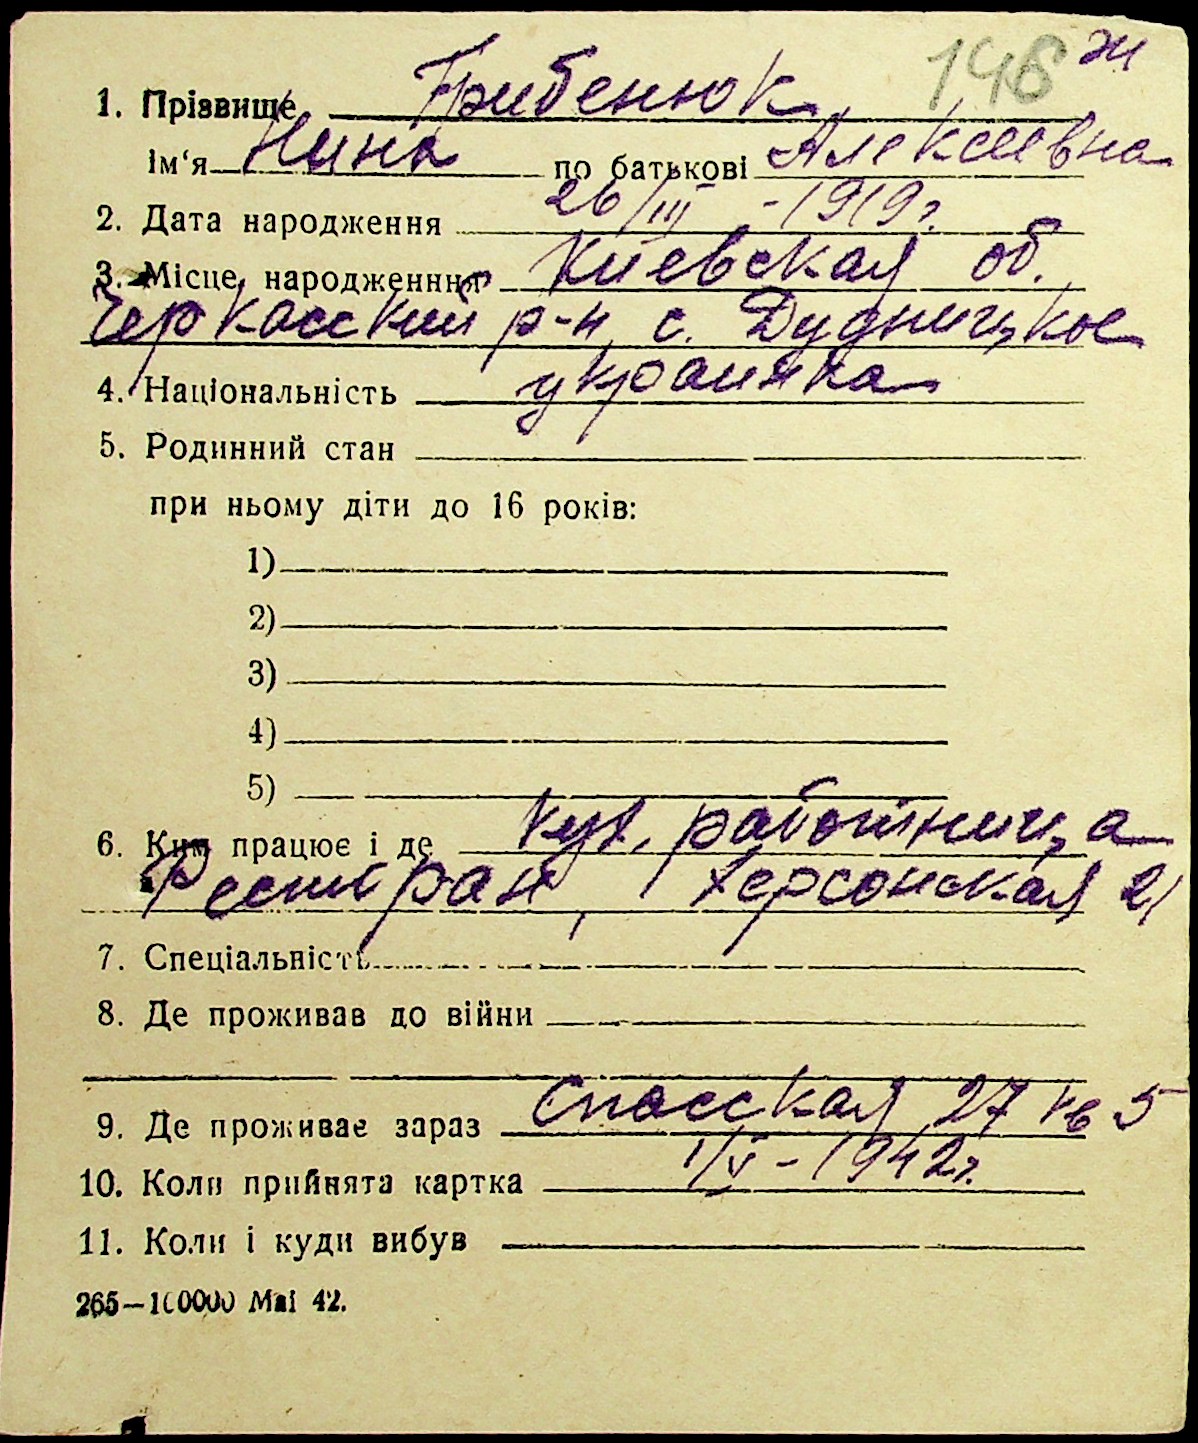 146 ж
1. Прізвище Грибенюк
Ім'я Нина по батькові Алексеевна
2. Дата народження 26/III - 1919 г.
3. Місце народженння Киевская об.
Черкасский р-н, с. Дудницкое
4. Національність украинка
5. Родинний стан
при ньому діти до 16 років:
1)
2)
3)
4)
5)
6. Ким працює і де кух. работница
Ресторан, Херсонская 21
7. Спеціальність
8. Де проживав до війни
9. Де проживає зараз Спасская 27 кв 5
10. Коли прийнята картка 1/V - 1942 г.
11. Коли і куди вибув
265—100000 Маі 42.